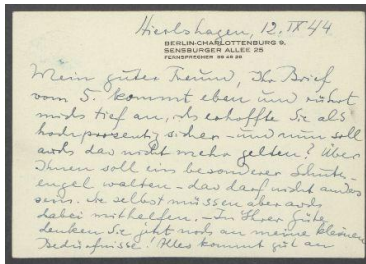 Hierlshagen, 12. IX 44
BERLIN-CHARLOTTENBURG 9,
SENSBURGER ALLEE 25
FERNSPRECHER 99 48 28
Mein guter Freund, Ihr Brief
vom 5. kommt eben und rührt
mich tief an, ich erhoffte Sie als
hochprozentig sicher – und nun soll
auch das nicht mehr gelten? Über
Ihnen soll ein besonderer Schutz-
engel walten – das darf nicht anders
sein. Sie selbst müssen aber auch
dabei mithelfen. – In Ihrer Güte
denken Sie jetzt noch an meine kleinen
Bedürfnisse! Alles kommt gut an